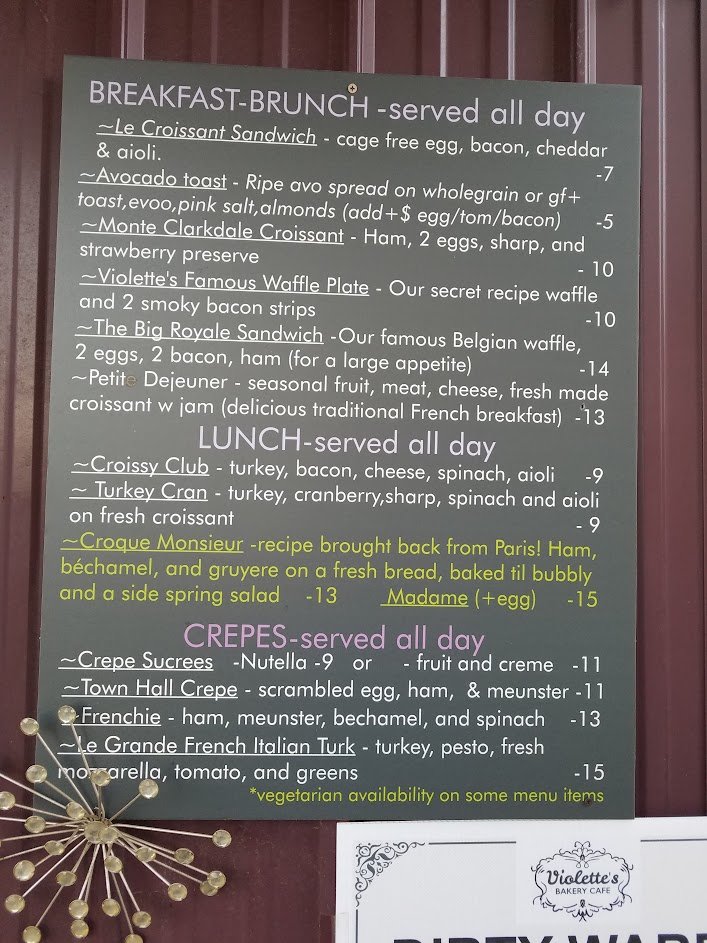 BREAKFAST-BRUNCH -served all day
~Le Croissant Sandwich - cage free egg, bacon, cheddar
& aioli. -7
~Avocado toast - Ripe avo spread on wholegrain or gf+
toast,evoo,pink salt,almonds (add+$ egg/tom/bacon) -5
~Monte Clarkdale Croissant - Ham, 2 eggs, sharp, and
strawberry preserve - 10
~Violette's Famous Waffle Plate - Our secret recipe waffle
and 2 smoky bacon strips -10
~The Big Royale Sandwich -Our famous Belgian waffle,
2 eggs, 2 bacon, ham (for a large appetite) -14
~Petite Dejeuner - seasonal fruit, meat, cheese, fresh made
croissant w jam (delicious traditional French breakfast) -13
LUNCH-served all day
~Croissy Club - turkey, bacon, cheese, spinach, aioli -9
~ Turkey Cran - turkey, cranberry,sharp, spinach and aioli
on fresh croissant - 9
~Croque Monsieur -recipe brought back from Paris! Ham,
béchamel, and gruyere on a fresh bread, baked til bubbly
and a side spring salad -13 Madame (+egg) -15
CREPES-served all day
~Crepe Sucrees -Nutella -9 or - fruit and creme -11
~Town Hall Crepe - scrambled egg, ham, & meunster -11
~Frenchie - ham, meunster, bechamel, and spinach -13
~Le Grande French Italian Turk - turkey, pesto, fresh
mozzarella, tomato, and greens -15
*vegetarian availability on some menu items
Violette's
BAKERY CAFE